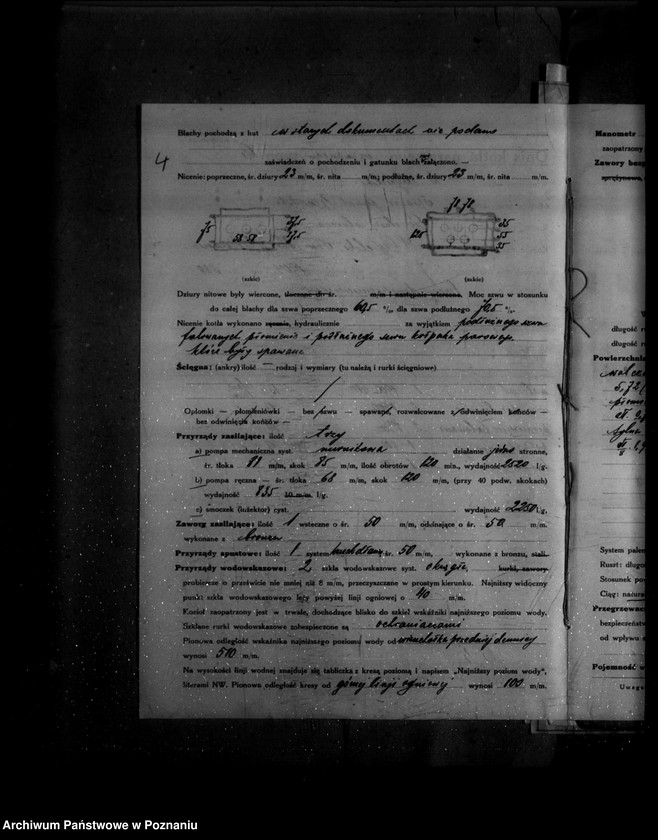 Blachy pochodzą z hut w starych dokumentach nie podano
4
zaświadczeń o pochodzeniu i gatunku blach załączono. —
Nicenie: poprzeczne, śr. dziury 23 m/m, śr. nita m/m; podłużne, śr. dziury 23 m/m, śr. nita m/m.
(szkic) (szkic)
Dziury nitowe były wiercone, tłoczone do śr. m/m i następnie wiercone. Moc szwu w stosunku
do całej blachy dla szwa poprzecznego 69,5 %, dla szwa podłużnego 70,5 %.
Nicenie kotła wykonano ręcznie, hydraulicznie za wyjątkiem podłużnego szwu
falowanych płomienic i podłużnego szwu kołpaka parowego
które były spawane
Ścięgna: (ankry) ilość — rodzaj i wymiary (tu należą i rurki ścięgniowe)
Opłomki — płomieniówki — bez szwu — spawane, rozwalcowane z odwinięciem końców —
bez odwinięcia końców —
Przyrządy zasilające: ilość trzy
a) pompa mechaniczna syst. działanie jedno stronne,
śr. tłoka 81 m/m, skok 85 m/m, ilość obrotów 120 min., wydajność 2520 l/g.
b) pompa ręczna — śr. tłoka 68 m/m, skok 120 m/m, (przy 40 podw. skokach)
wydajność 835 10 m/m l/g.
c) smoczek (inżektor) syst. wydajność 2250 l/g.
Zawory zasilające: ilość 1 wsteczne o śr. 50 m/m, odcinające o śr. 50 m/m.
wykonane z bronzu
Przyrządy spustowe: ilość 1 system śr. 50 m/m, wykonane z bronzu, stali.
Przyrządy wodowskazowe: 2 szkła wodowskazowe syst. okrągłe. kurki, zawory
probiercze o prześwicie nie mniej niż 8 m/m, przeczyszczane w prostym kierunku. Najniższy widoczny
punkt szkła wodowskazowego leży powyżej linji ogniowej o 40 m/m.
Kocioł zaopatrzony jest w trwałe, dochodzące blisko do szkieł wskaźniki najniższego poziomu wody.
Szklane rurki wodowskazowe zabezpieczone są ochraniaczami
Pionowa odległość wskaźnika najniższego poziomu wody od wierzchołka przedniej dennicy
wynosi 510 m/m.
Na wysokości linji wodnej znajduje się tabliczka z kresą poziomą i napisem „Najniższy poziom wody",
literami NW. Pionowa odległość kresy od górnej linji ogniowej wynosi 100 m/m.
Manometr
zaopatrzony
Zawory bezp
sprężynowe,
długość r
długość r
Powierzchnie
System palen
Ruszt: długo
Stosunek po
Ciąg: natura
Przegrzewac
bezpieczeństw
od wpływu s
Pojemność w
Uwaga
Archiwum Państwowe w Poznaniu